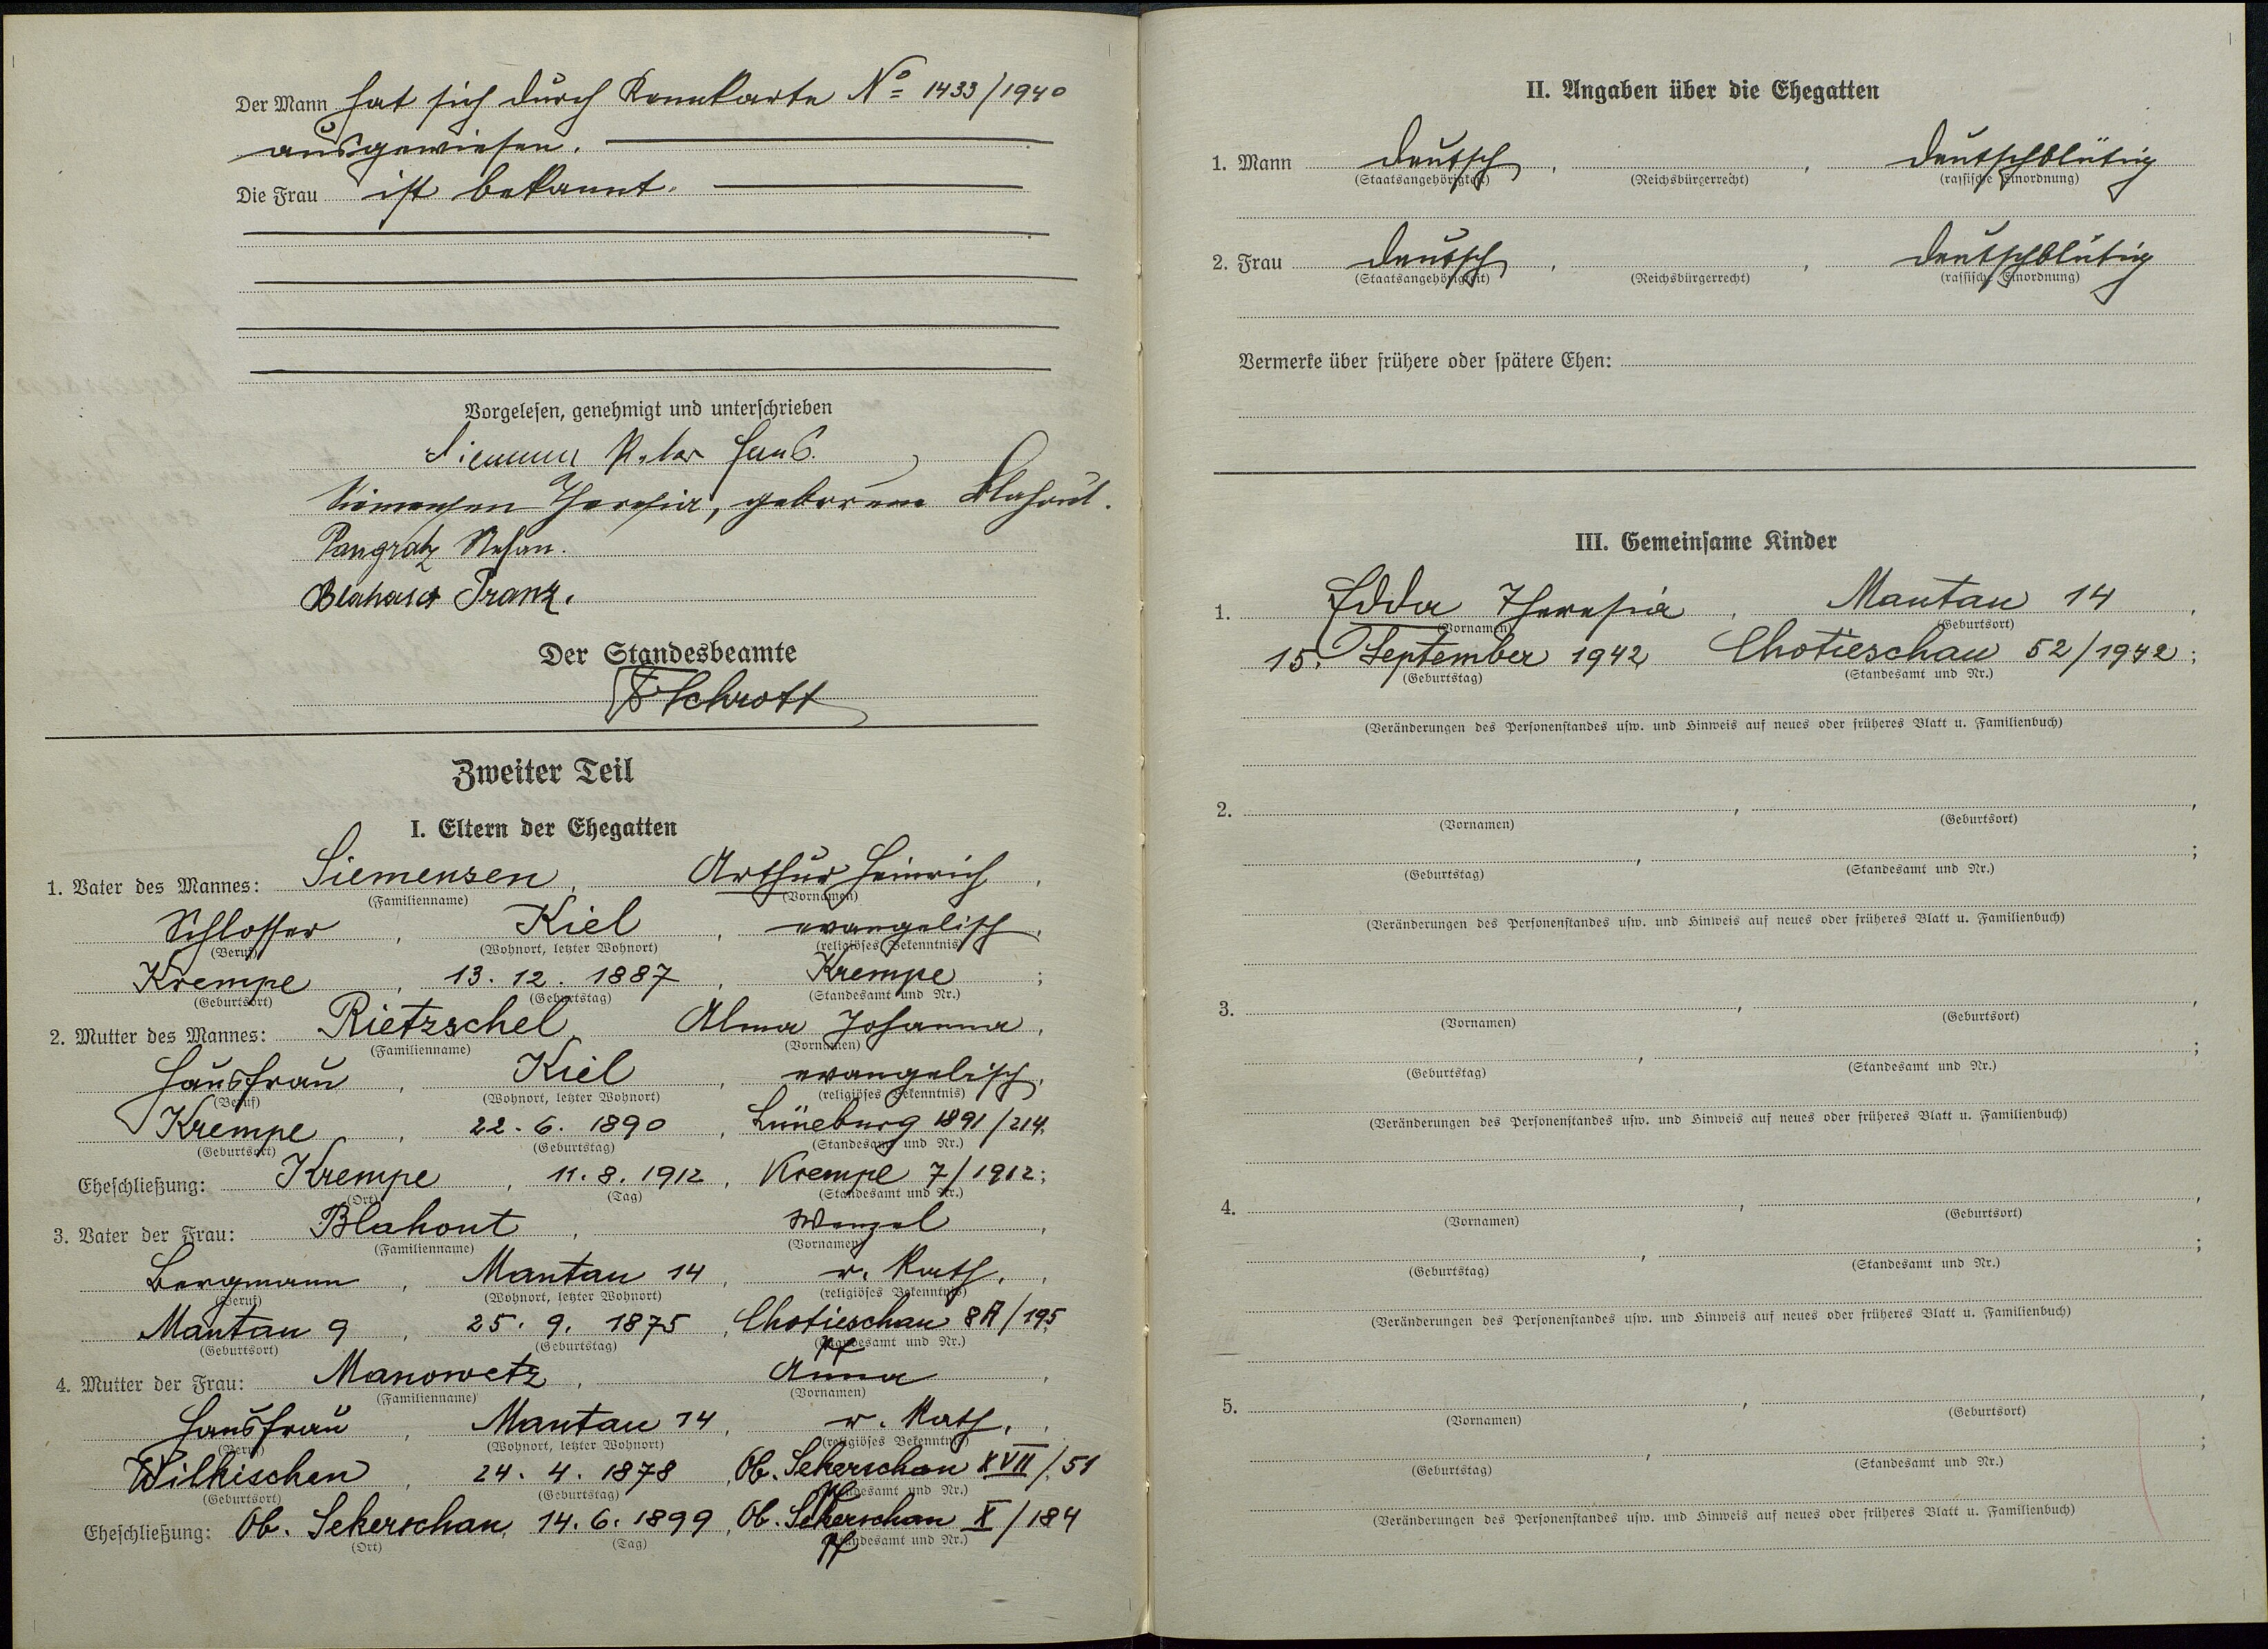 Der Mann hat sich durch Kennkarte No 1433/1940
ausgewiesen.
Die Frau ist bekannt.
Vorgelesen, genehmigt und unterschrieben
Hans.
Siemensen Theresia, geborene Blahout.
Pangratz Stefan.
Blahout Franz.
Der Standesbeamte
Schrott
Zweiter Teil
I. Eltern der Ehegatten
1. Vater des Mannes: Siemensen, Arthur Heinrich,
(Familienname) (Vornamen)
Schlosser, Kiel, evangelisch,
(Beruf) (Wohnort, letzter Wohnort) (religiöses Bekenntnis)
Krempe, 13. 12. 1887, Krempe;
(Geburtsort) (Geburtstag) (Standesamt und Nr.)
2. Mutter des Mannes: Rietzschel, Alma Johanna,
(Familienname) (Vornamen)
Hausfrau, Kiel, evangelisch,
(Beruf) (Wohnort, letzter Wohnort) (religiöses Bekenntnis)
Krempe, 22. 6. 1890, Lüneburg 1891/214.
(Geburtsort) (Geburtstag) (Standesamt und Nr.)
Eheschließung: Krempe, 11. 8. 1912, Krempe 7/1912;
(Ort) (Tag) (Standesamt und Nr.)
3. Vater der Frau: Blahout, Wenzel,
(Familienname) (Vornamen)
Bergmann, Mantau 14, r. kath.,
(Beruf) (Wohnort, letzter Wohnort) (religiöses Bekenntnis)
Mantau 9, 25. 9. 1875, Chotieschau 8A/195
(Geburtsort) (Geburtstag) (Standesamt und Nr.)
4. Mutter der Frau: Manowetz, Anna,
(Familienname) (Vornamen)
Hausfrau, Mantau 14, r. kath.,
(Beruf) (Wohnort, letzter Wohnort) (religiöses Bekenntnis)
Wilkischen, 24. 4. 1878, Ob. Sekerschan XVII/51
(Geburtsort) (Geburtstag) (Standesamt und Nr.)
Eheschließung: Ob. Sekerschan, 14. 6. 1899, Ob. Sekerschan X/184
(Ort) (Tag) (Standesamt und Nr.)
II. Angaben über die Ehegatten
1. Mann deutsch, , deutschblütig
(Staatsangehörigkeit) (Reichsbürgerrecht) (rassische Einordnung)
2. Frau deutsch, , deutschblütig
(Staatsangehörigkeit) (Reichsbürgerrecht) (rassische Einordnung)
Vermerke über frühere oder spätere Ehen:
III. Gemeinsame Kinder
1. Edda Theresia, Mantau 14,
(Vornamen) (Geburtsort)
15. September 1942, Chotieschau 52/1942;
(Geburtstag) (Standesamt und Nr.)
(Veränderungen des Personenstandes usw. und Hinweis auf neues oder früheres Blatt u. Familienbuch)
2. , ,
(Vornamen) (Geburtsort)
, ;
(Geburtstag) (Standesamt und Nr.)
(Veränderungen des Personenstandes usw. und Hinweis auf neues oder früheres Blatt u. Familienbuch)
3. , ,
(Vornamen) (Geburtsort)
, ;
(Geburtstag) (Standesamt und Nr.)
(Veränderungen des Personenstandes usw. und Hinweis auf neues oder früheres Blatt u. Familienbuch)
4. , ,
(Vornamen) (Geburtsort)
, ;
(Geburtstag) (Standesamt und Nr.)
(Veränderungen des Personenstandes usw. und Hinweis auf neues oder früheres Blatt u. Familienbuch)
5. , ,
(Vornamen) (Geburtsort)
, ;
(Geburtstag) (Standesamt und Nr.)
(Veränderungen des Personenstandes usw. und Hinweis auf neues oder früheres Blatt u. Familienbuch)